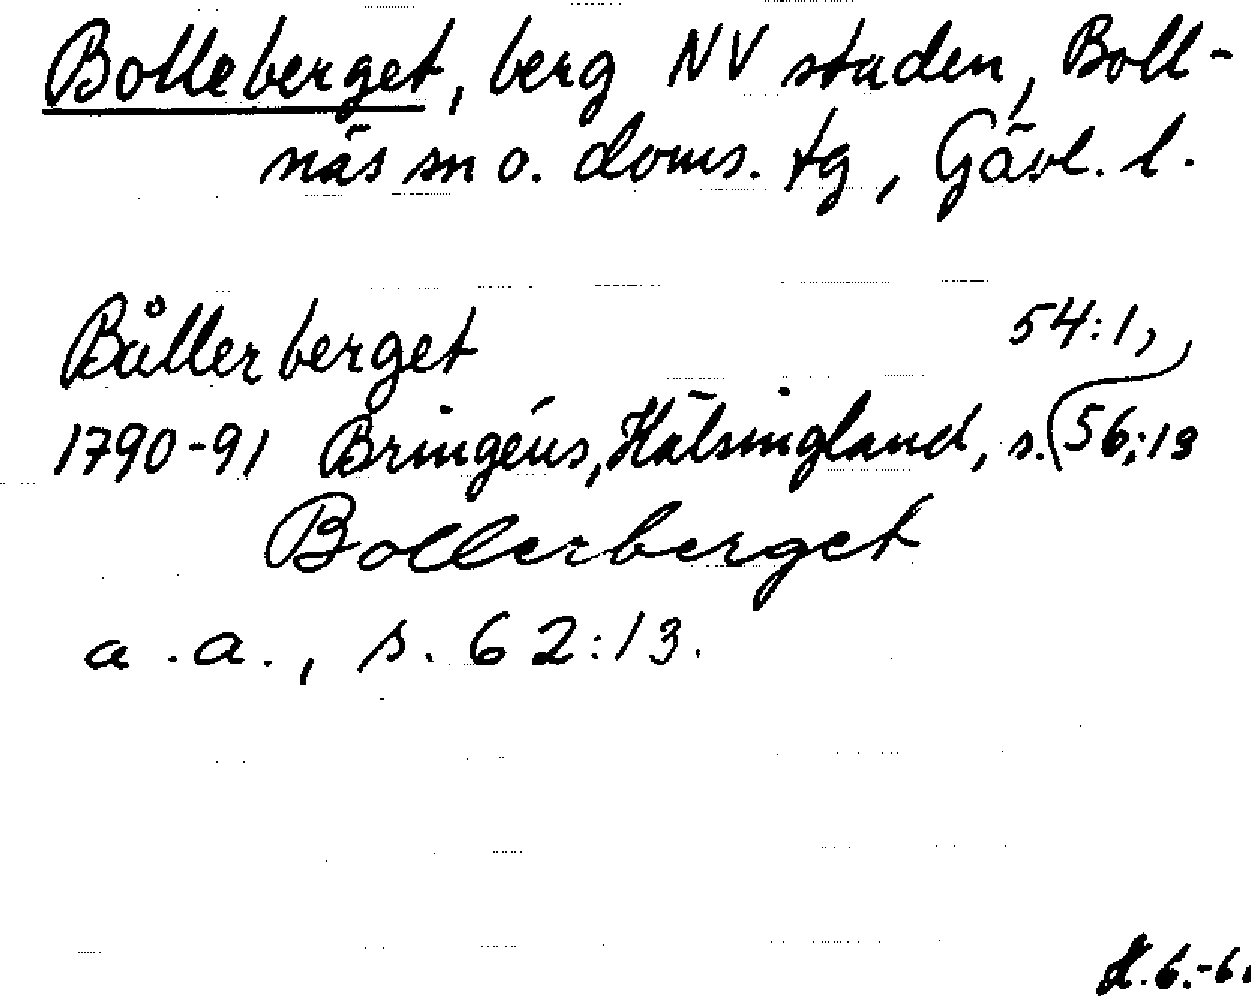 Bolleberget, berg NV staden, Boll-
näs sn o. doms. tg, Gävl. l.
Bållerberget 54:1,
1790-91 Bringéus, Hälsingland, s. 56:19
Bollerberget
a.a., s. 62:13.